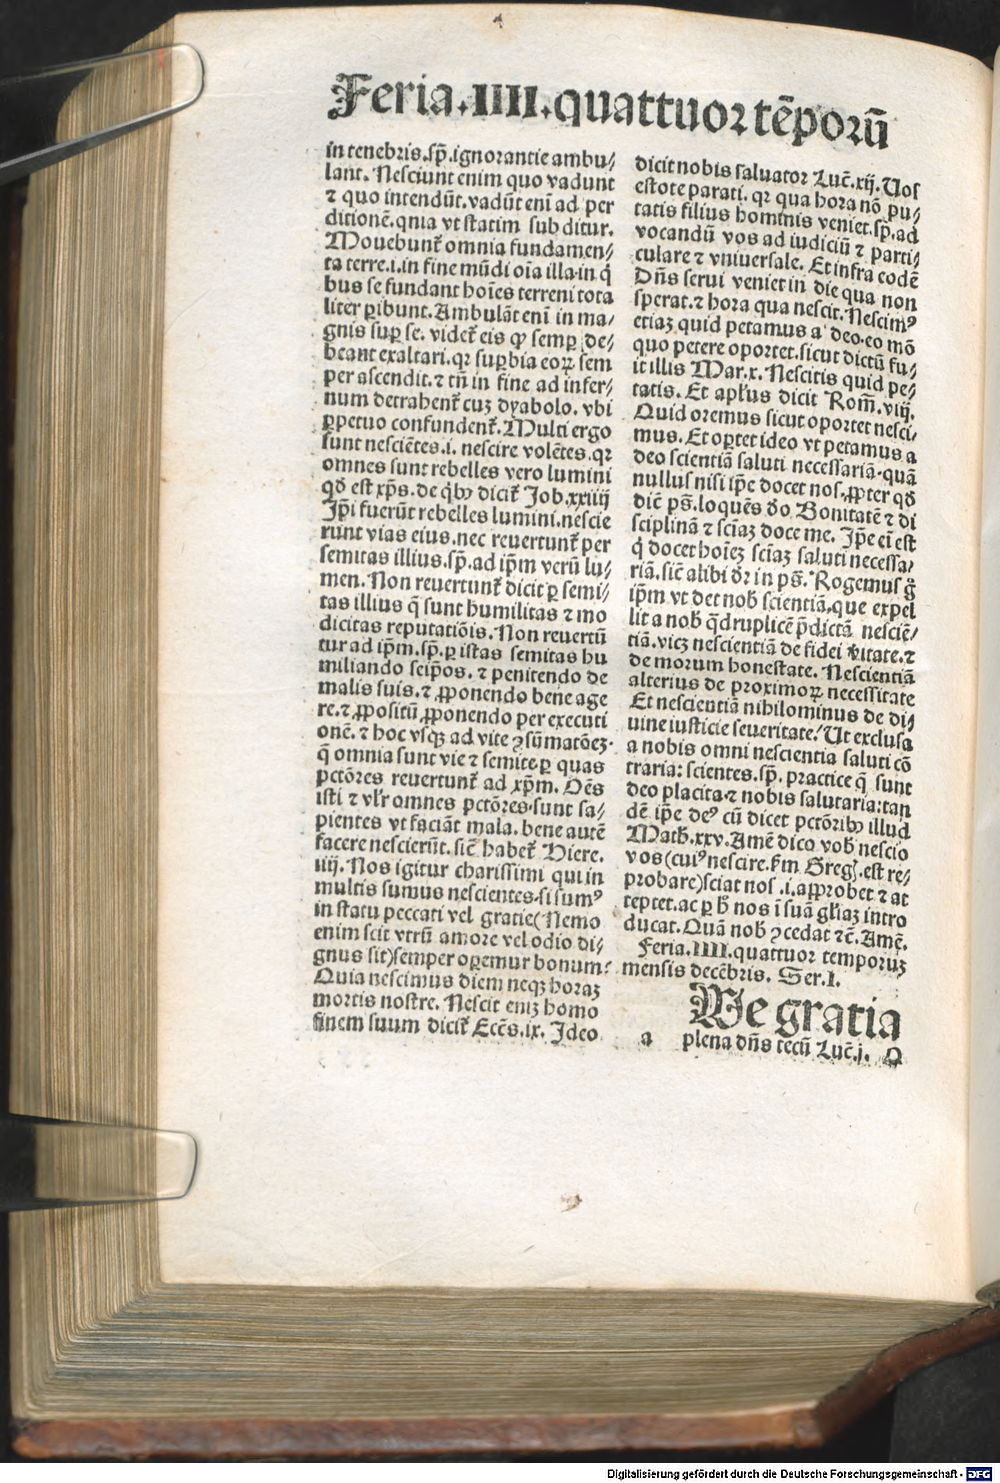 Feria.IIII.quattuor tēporū
in tenebris.sp̄.ignorantie ambu/
lant. Nesciunt enim quo vadunt
⁊ quo intendūt.vadūt eni᷑ ad per
ditionē.qnia vt statim subditur.
Mouebunt᷑ omnia fundamen/
ta terre.i.in fine mūdi oīa illa in q̇
bus se fundant hoīes terreni tota
liter ꝑibunt. Ambulāt eni᷑ in ma/
gnis suꝑ se. videt᷑ eis ꝙ semꝑ de/
beant exaltari.qꝛ suꝑbia eoꝝ sem
per ascendit.⁊ tn̄ in fine ad infer/
num detrahent᷑ cuꝫ dyabolo. vbi
ꝑpetuo confundent᷑. Multi ergo
sunt nesciētes.i. nescire volētes.qꝛ
omnes sunt rebelles vero lumini
qd̄ est xp̄s. de qͥbꝰ dicit᷑ Job.xxiiij
Jp̄i fuerūt rebelles lumini.nescie
runt vias eius.nec reuertunt᷑ per
semitas illius.sp̄.ad ip̄m verū lu/
men. Non reuertunt᷑ dicit ꝑ semi/
tas illius q̄ sunt humilitas ⁊ mo
dicitas reputatiōis. Non reuertū
tur ad ip̄m.sp̄.ꝑ istas semitas hu
miliando seip̄os. ⁊ penitendo de
malis suis.⁊ ꝓponendo bene age
re.⁊ ꝓpositū ꝓponendo per executi
onē. ⁊ hoc vsqꝫ ad vite ꝯsūmatōeꝫ.
q̄ omnia sunt vie ⁊ semite.ꝑ quas
pctōres reuertunt᷑ ad xp̄m. Oēs
isti ⁊ vlꝛ omnes pctōres.sunt sa/
pientes vt faciāt mala. bene autē
facere nescierūt. sic̄ habet᷑ Hiere.
iiij. Nos igitur charissimi qui in
multis sumus nescientes.si sumꝰ
in statu peccati vel gratie(Nemo
enim scit vtrū amore vel odio di/
gnus sit)semper oꝑemur bonum:
Quia nescimus diem neqꝫ horaꝫ
mortis nostre. Nescit eniꝫ homo
finem suum dicit᷑ Ecc̄s.ix. Jdeo
dicit nobis saluator Luc̄.xij.Uos
estote parati. qꝛ qua hora nō pu/
tatis filius hominis veniet.sp̄.ad
vocandū vos ad iudiciū ⁊ parti/
culare ⁊ vniuersale. Et infra eodē
Dn̄s serui veniet in die qua non
sperat.⁊ hora qua nescit. Nescimꝰ
etiaꝫ quid petamus a deo.eo mō
quo petere oportet.sicut dictū fu/
it illis Mar.x. Nescitis quid pe/
tatis. Et apl̓us dicit Rom̄.viij.
Quid oremus sicut oportet nesci/
mus. Et oꝑtet ideo vt petamus a
deo scientiā saluti necessariā.quā
nullus nisi ip̄e docet nos.ꝓpter qd̄
dic̄ ps̄.loquēs do̓. Bonitatē ⁊ di
sciplinā ⁊ sciāꝫ doce me. Jp̄e ei᷑ est
q̇ docet hoīeꝫ sciāꝫ saluti necessa/
riā.sic̄ alibi dr̄ in ps̄. Rogemus g̊
ip̄m vt det nob̓ scientiā.que expel
lit a nob̓ q̄druplicē p̄dictā nesciē/
tiā.vicꝫ nescientiā de fidei v̓itate.⁊
de morum honestate. Nescientiā
alterius de proximoꝝ necessitate
Et nescientiā nihilominus de di/
uine iusticie seueritate/ Ut exclusa
a nobis omni nescientia saluti cō
traria: scientes.sp̄. practice q̄ sunt
deo placita.⁊ nobis salutaria:tan
dē ip̄e deꝰ cū dicet pctōribꝰ illud
Math̓.xxv. Amē dico vob̓ nescio
vos(cuiꝰ nescire.f̓m Greg̓.est re/
probare)sciat nos .i.apꝓbet ⁊ ac
ceptet.ac ꝑ h̓ nos ī suā gl̓iaꝫ intro
ducat. Quā nob̓ ꝯcedat ⁊c̄. Amē.
Feria.IIII.quattuor temporuꝫ
mensis decēbris. Ser.I.
We gratia
a plena dn̄s tecū Luc̄.j. O
Digitalisierung gefördert durch die Deutsche Forschungsgemeinschaft - DFG